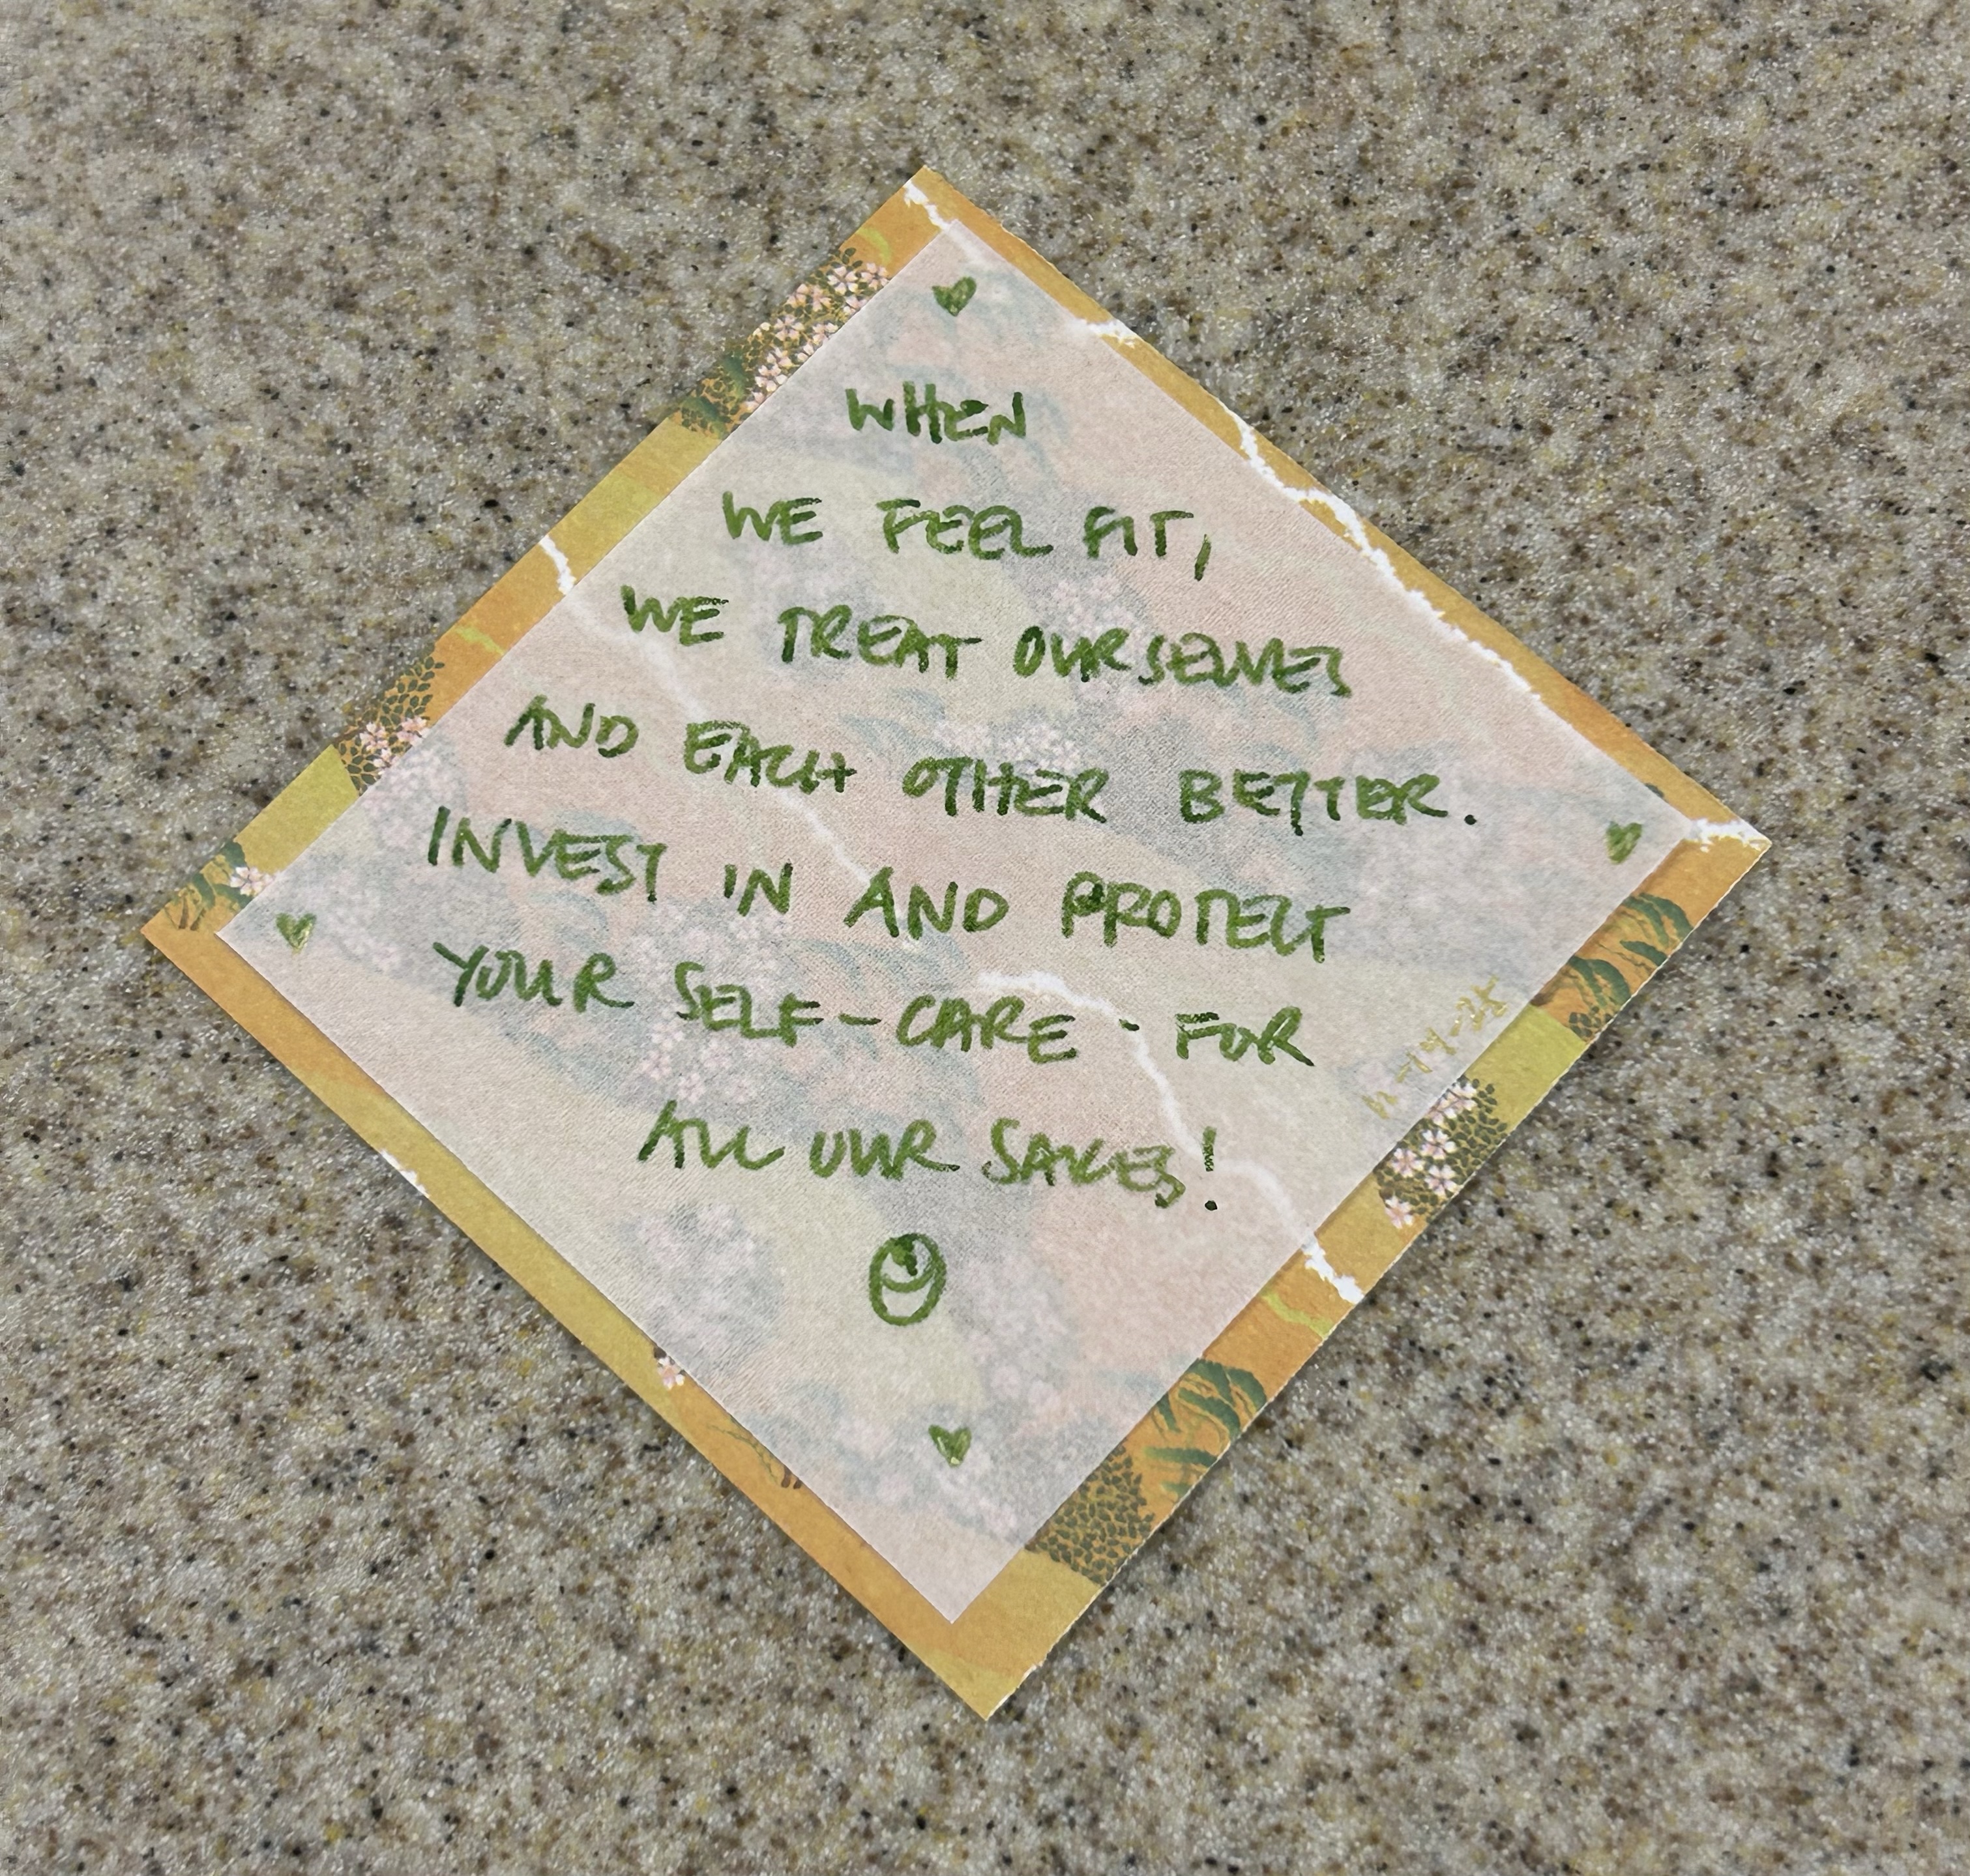 WHEN
WE FEEL FIT,
WE TREAT OURSELVES
AND EACH OTHER BETTER.
INVEST IN AND PROTECT
YOUR SELF-CARE - FOR
ALL OUR SAKES!
11-19-25